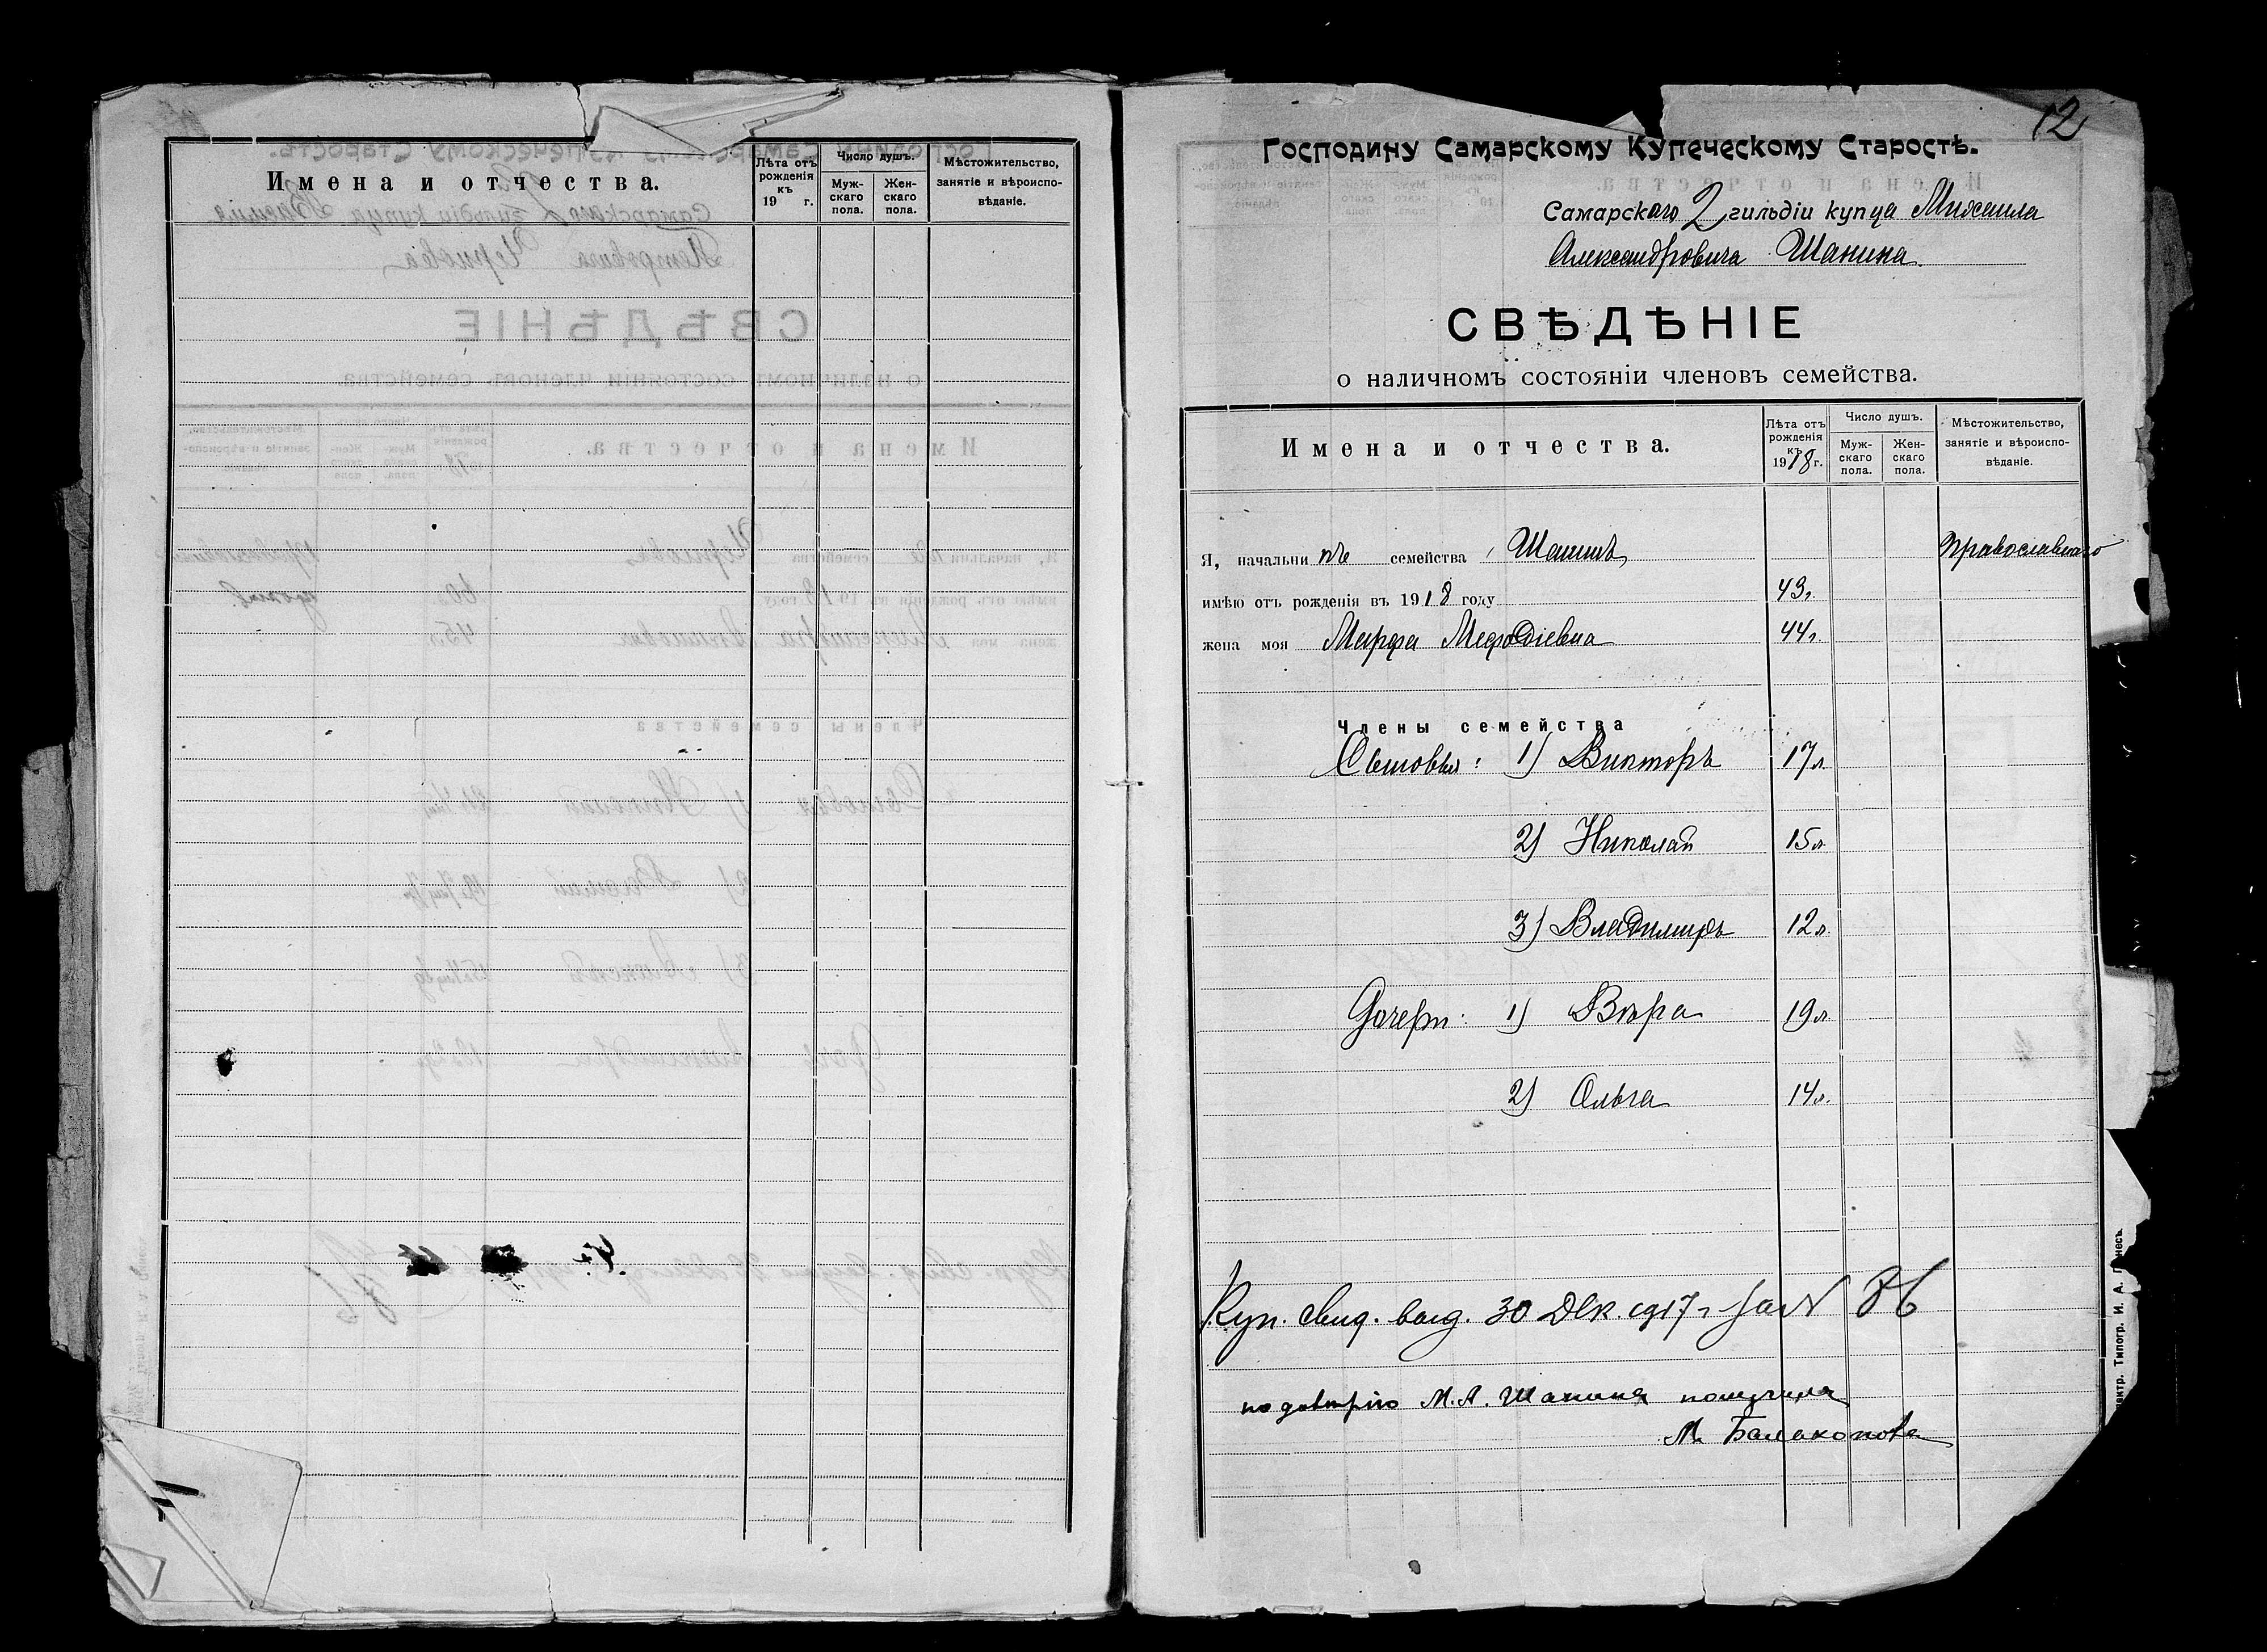 Имена и отчества.
Лѣта отъ рожденія къ 19 г.
Число душъ.
Муж-
скаго
пола.
Жен-
скаго
пола.
Мѣстожительство,
занятіе и вѣроиспо-
вѣданіе.
12
Господину Самарскому Купеческому Старостѣ.
Самарскаго 2 гильдіи купца Михаила
Александровича Шанина
СВѢДѢНІЕ
о наличномъ состояніи членовъ семейства.
Имена и отчества.
Лѣта отъ
рожденія
къ
1918 г.
Число душъ.
Муж-
скаго
пола.
Жен-
скаго
пола.
Мѣстожительство,
занятіе и вѣроиспо-
вѣданіе.
Я, начальникъ семейства Шанинъ, православнаго
имѣю отъ рожденія въ 1918 году 43 г.
жена моя Марфа Мефодіевна 44 г.
Члены семейства
Сыновья: 1) Викторъ 17 л.
2) Николай 15 л.
3) Владимиръ 12 л.
Дочери: 1) Вѣра 19 л.
2) Ольга 14 л.
Куп. свид. выд. 30 Дек. 1917 г. за N 36
по довѣрію М. А. Шанина получила
М. Балаконова
Типогр. И. А.